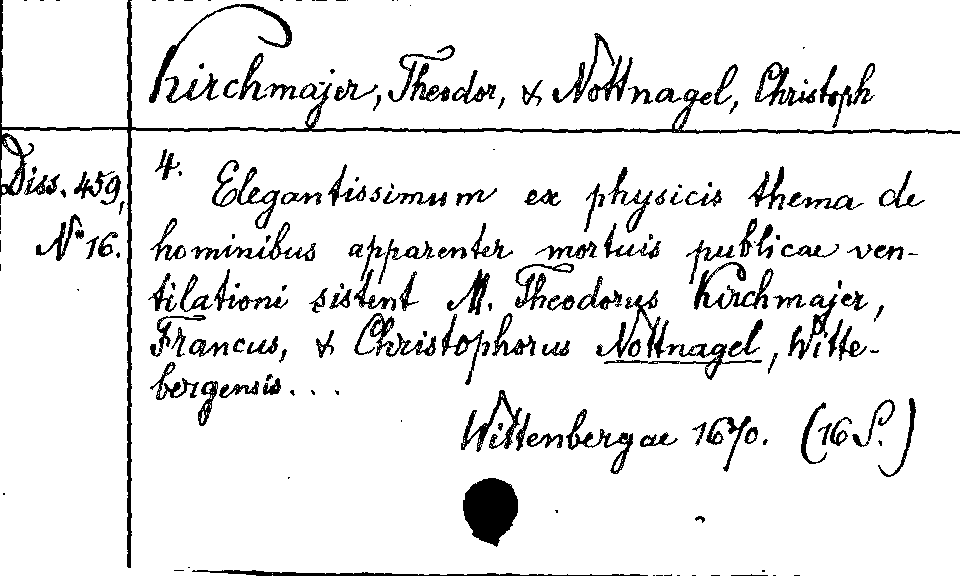 Kirchmajer, Theodor, & Nottnagel, Christoph
Diss. 459,
N° 16.
4.
Elegantissimum ex physicis thema de
hominibus apparenter mortuis publicae ven-
tilationi sistent M. Theodorus Kirchmajer,
Francus, & Christophorus Nottnagel, Witte-
bergensis...
Wittenbergae 1670. (16 S.)